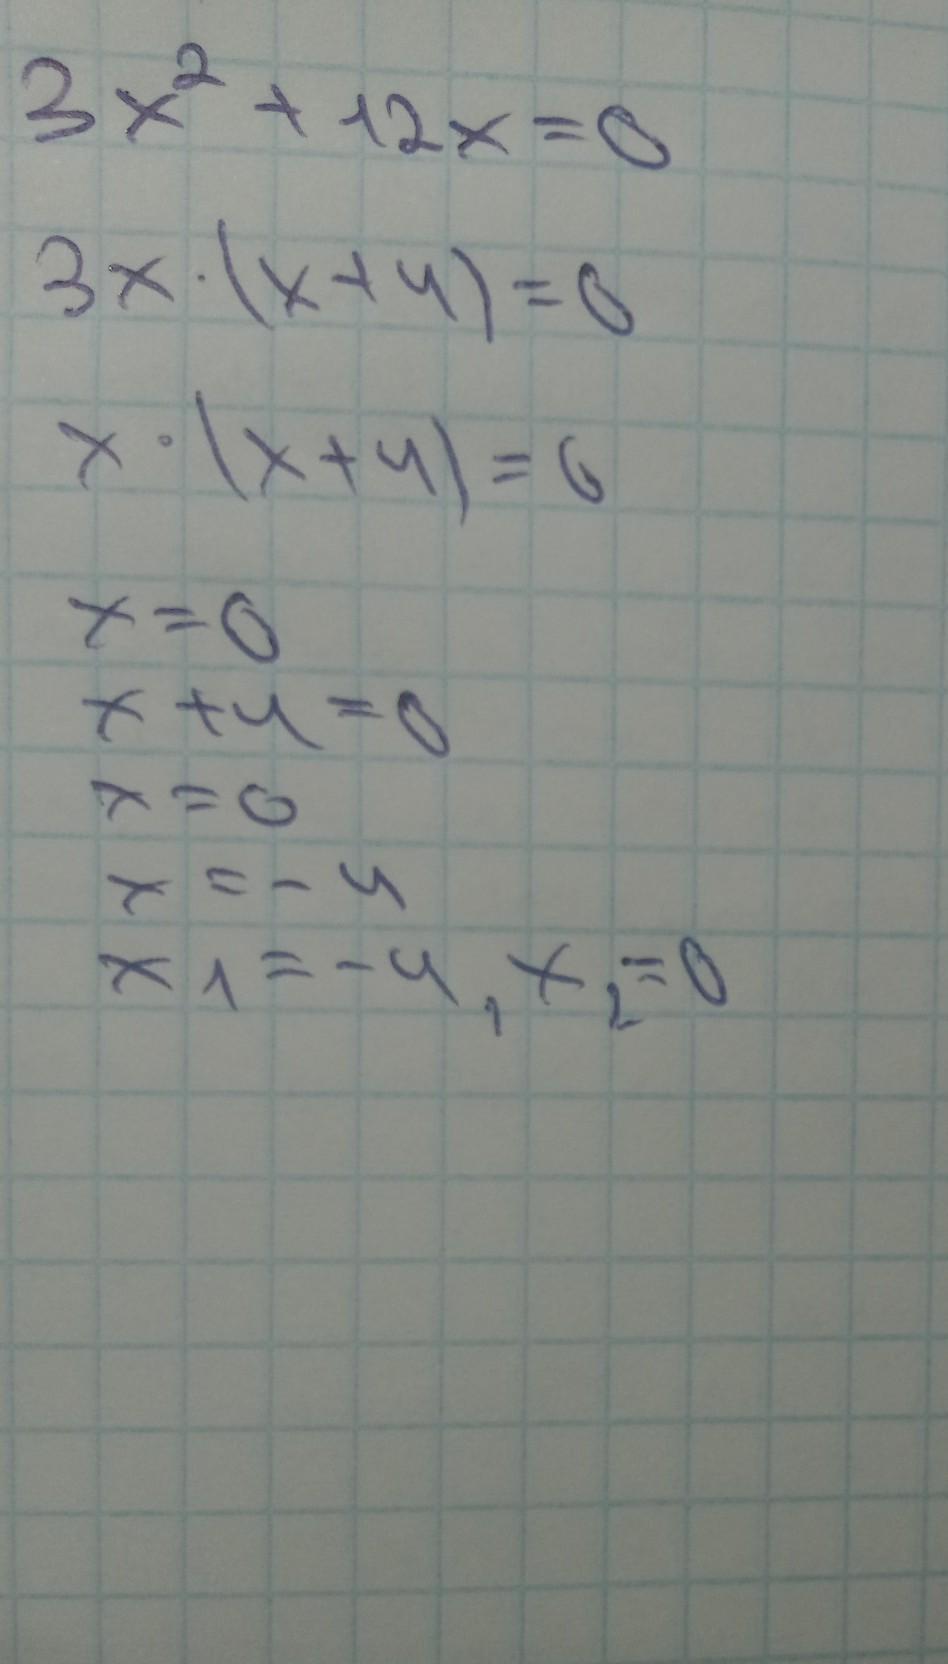 3x² + 12x = 0
3x · (x + 4) = 0
x · (x + 4) = 0
x = 0
x + 4 = 0
x = 0
x = - 4
x₁ = - 4, x₂ = 0